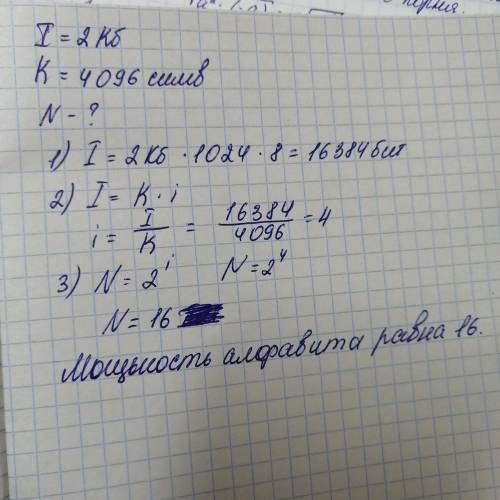 I = 2 Кб
K = 4096 симв
N - ?
1) I = 2 Кб · 1024 · 8 = 16384 бит
2) I = K · i
i = I/K = 16384/4096 = 4
3) N = 2^i N = 2^4
N = 16
Мощьность алфавита равна 16.